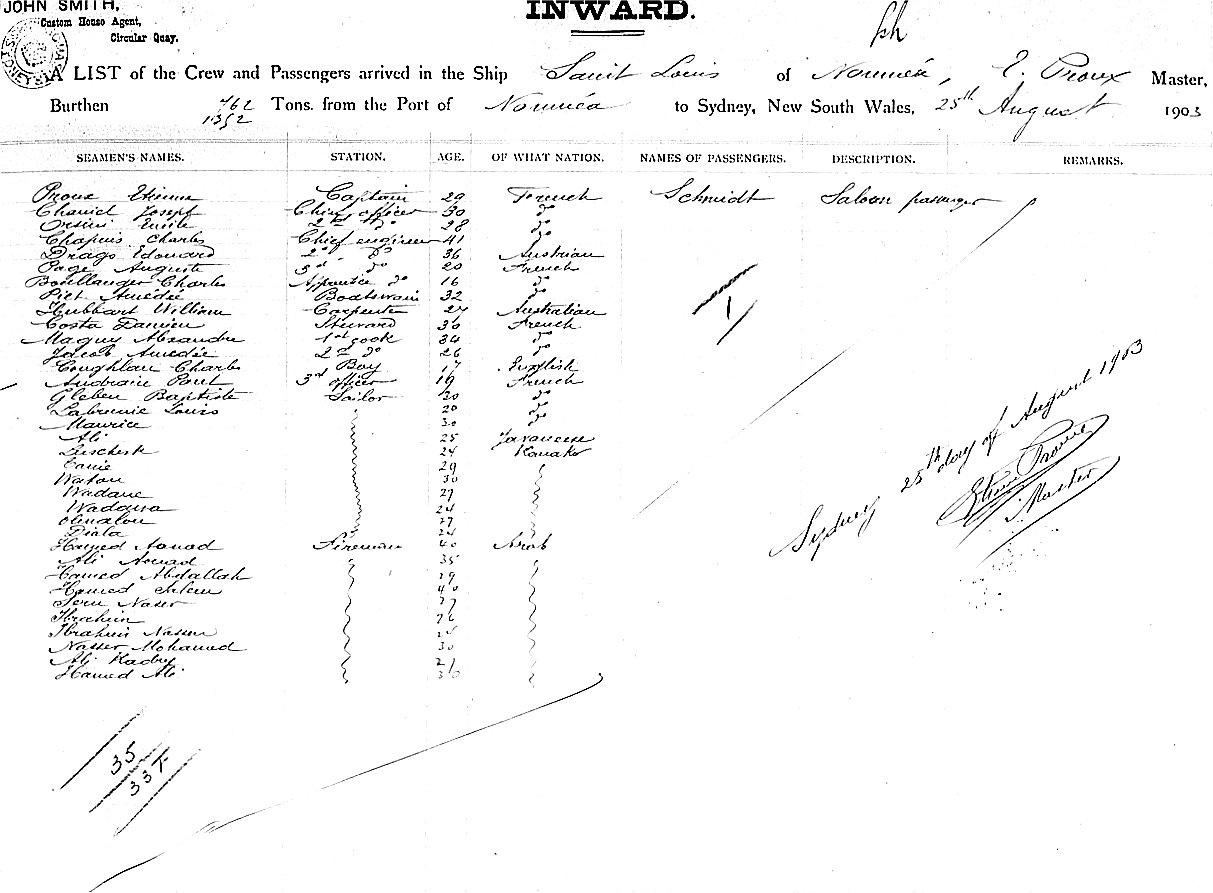 JOHN SMITH,
Custom House Agent,
Circular Quay.
INWARD.
A LIST of the Crew and Passengers arrived in the Ship Saint Louis of Nouméa, E. Proux Master,
Burthen 762 Tons. from the Port of Nouméa to Sydney, New South Wales, 25th August 1903
1352
SEAMEN'S NAMES. STATION. AGE. OF WHAT NATION. NAMES OF PASSENGERS. DESCRIPTION. REMARKS.
Proux Etienne Captain 29 French Schmidt Saloon passenger
Joseph Chief officer 30 do
Orsini Emile 2nd do 28 do
Chapuis Charles Chief engineer 41 do
Drago Edouard 2d do 36 Austrian
Page Auguste 3rd do 20 French
Boullanger Charles Apprentice do 16 do
Piet Amédée Boatswain 32 do
Hubbart William Carpenter 27 Australian
Costa Damien Steward 30 French
Maguy Alexandre 1st cook 34 do
Jacob Amédée 2nd do 26 do
Coughlan Charles Boy 17 English
3rd officer 19 French
Gleben Baptiste Sailor 20 do
Louis 20 do
Maurice 30 do
Ali 25 Javaneese
24 Kanaka
29
30
Wadane 27
24
27
Diala 24
Hamed Fireman 40 Arab
Ali 35
Hamed Abdallah 29
Hamed 40
Naser 27
Ibrahim 26
Ibrahim Nasser
Nasser Mohamed 30
Ali
Hamed Ali 30
1
Sydney 25th day of August 1903
Master
35